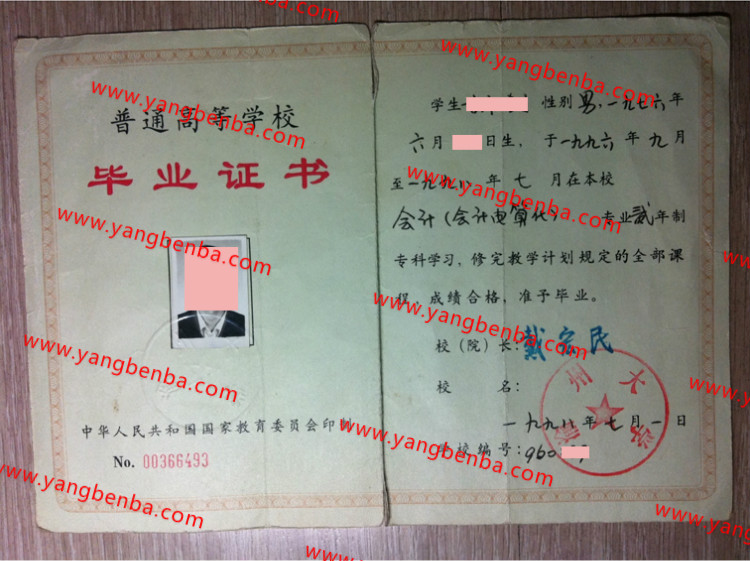 普通高等学校
毕业证书
中华人民共和国国家教育委员会印制
No. 00366493
学生 性别 男，一九七六年
六月 日生，于一九九六年九月
至一九九八年七月在本校
会计（会计电算化） 专业 贰年制
专科学习，修完教学计划规定的全部课
程，成绩合格，准予毕业。
校（院）长：戴宗民
校 名：
州大
一九九八年七月一日
学校编号：960
www.yangbenba.com
www.yangbenba.com
www.yangbenba.com
www.yangbenba.com
www.yangbenba.com
www.yangbenba.com
www.yangbenba.com
www.yangbenba.com
www.yangbenba.com
www.yangbenba.com